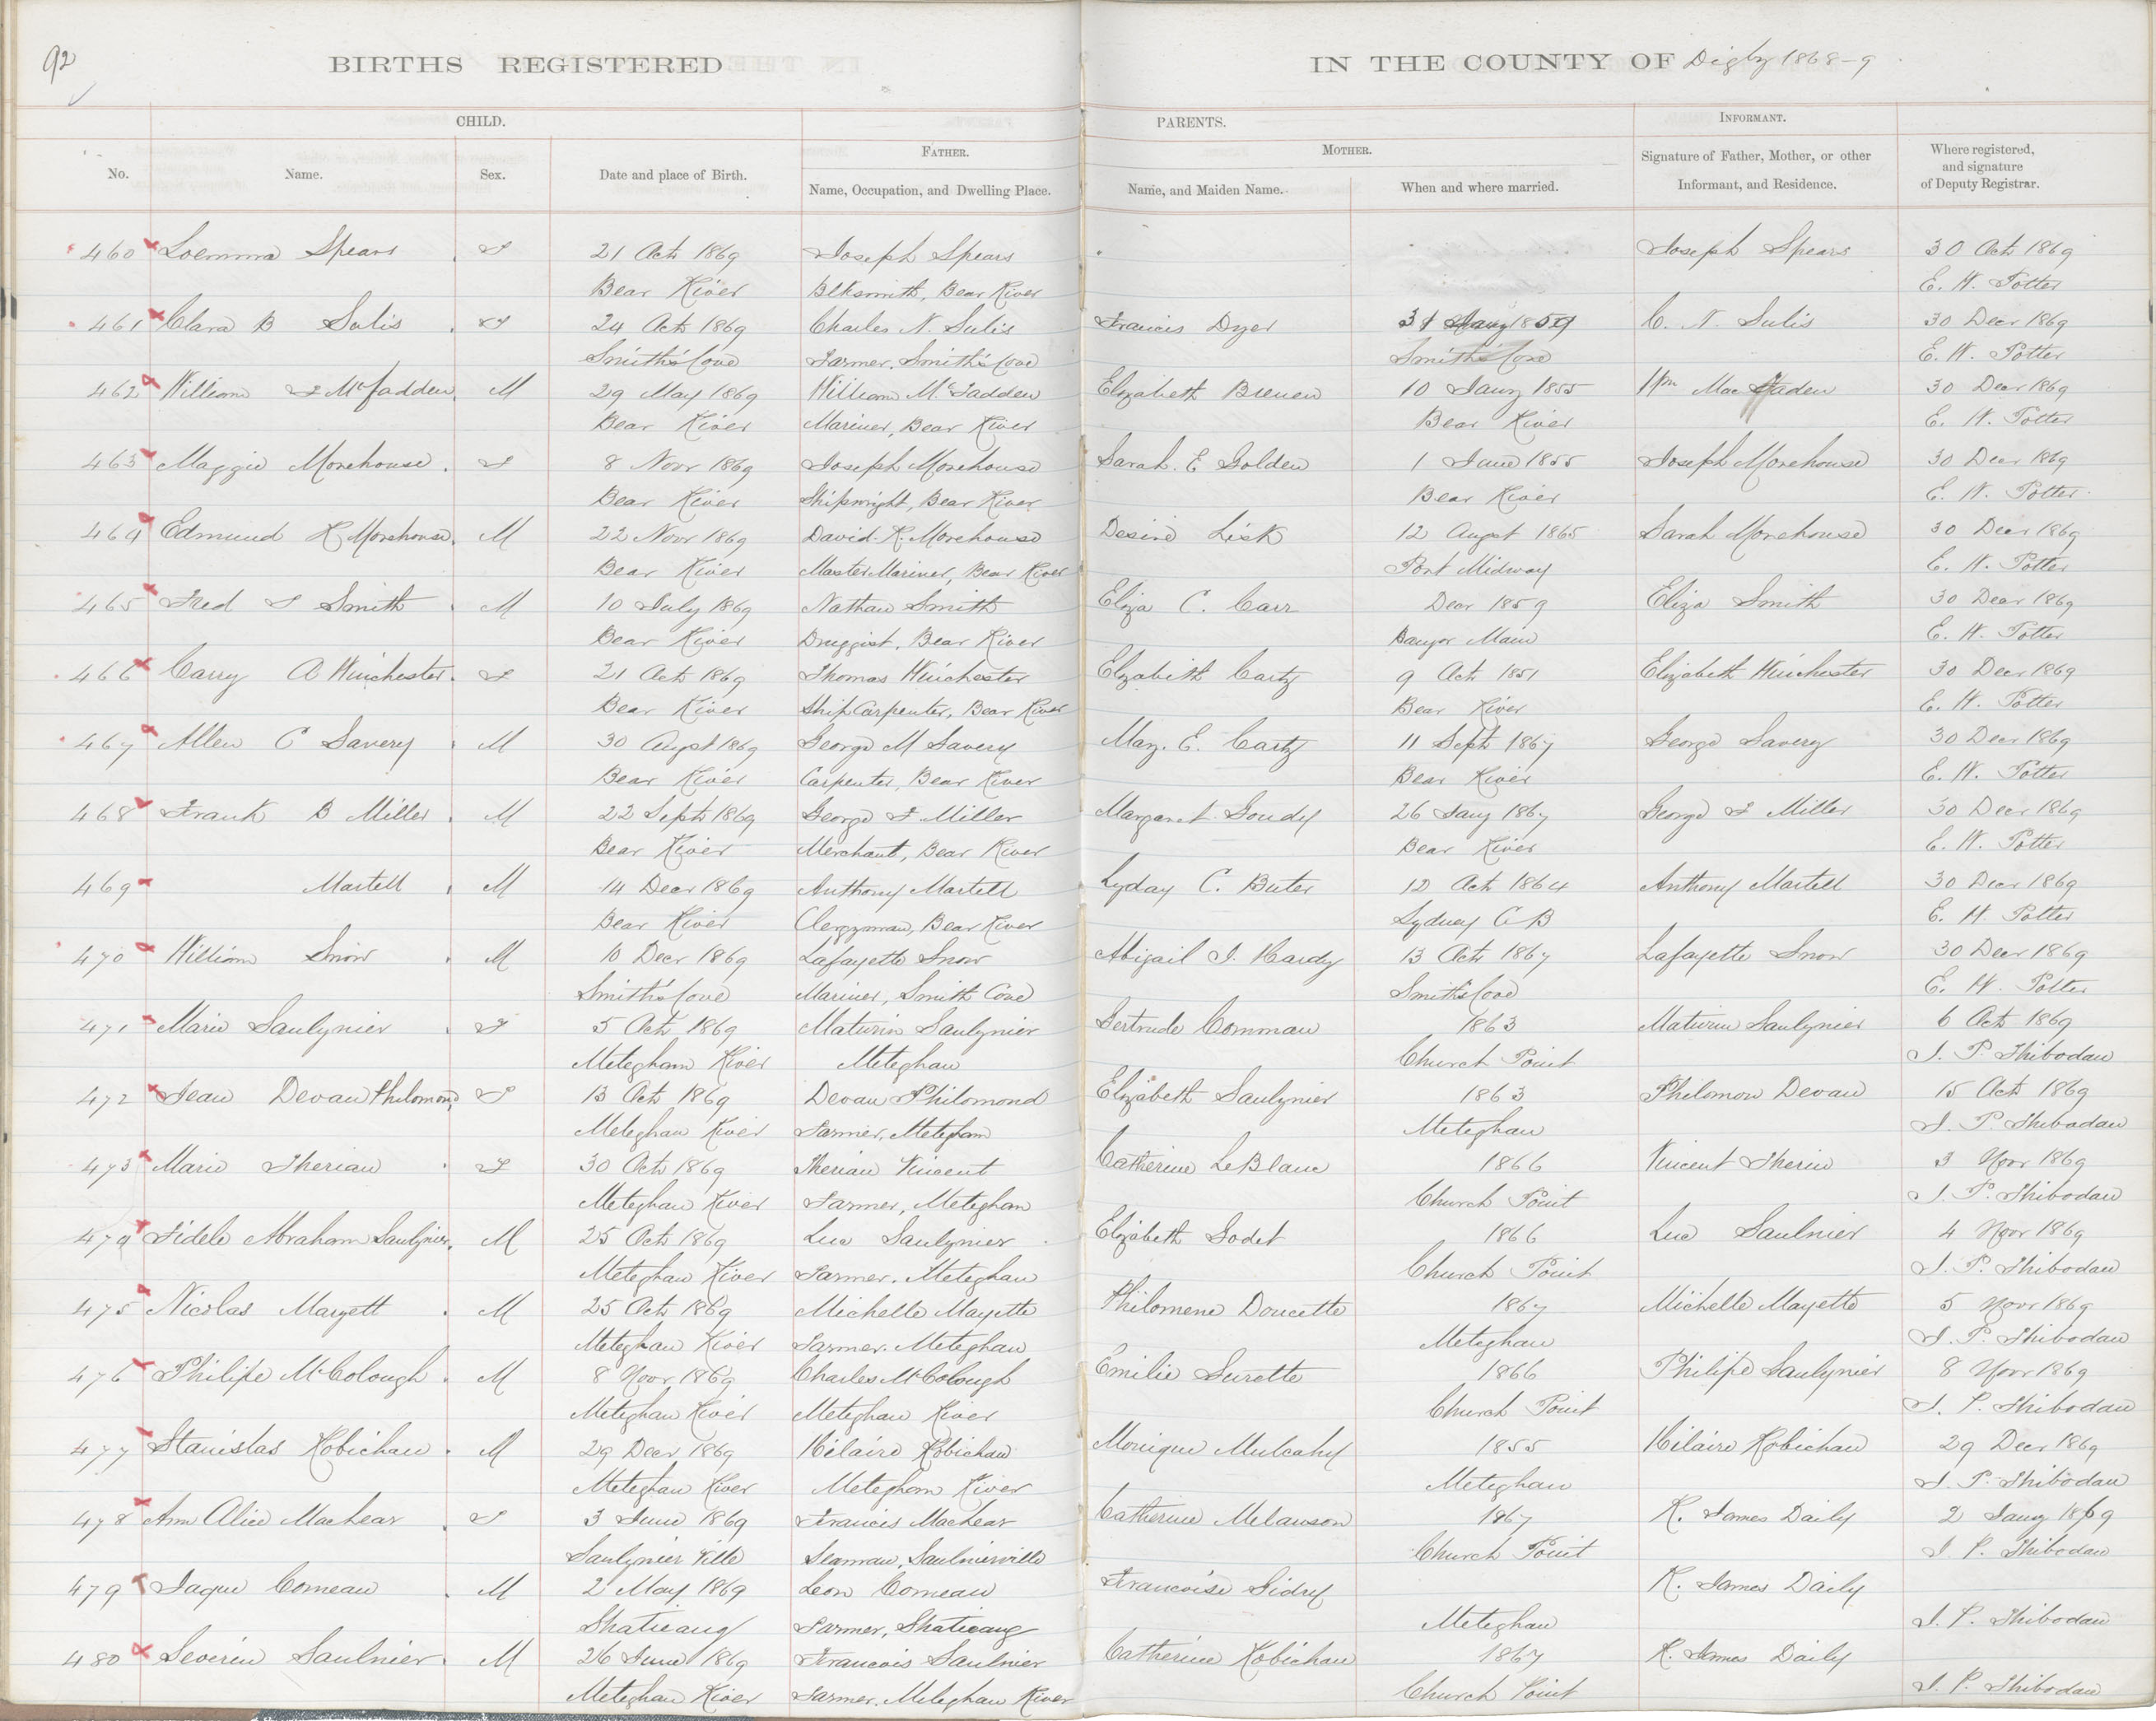 92
BIRTHS REGISTERED IN THE COUNTY OF Digby 1868-9
CHILD. PARENTS. INFORMANT.
No. Name. Sex. Date and place of Birth. FATHER. Name, Occupation, and Dwelling Place. MOTHER. Name, and Maiden Name. When and where married. Signature of Father, Mother, or other Informant, and Residence. Where registered, and signature of Deputy Registrar.
460 Loemma Spears F 21 Oct 1869 Joseph Spears Joseph Spears 30 Oct 1869
Bear River Blksmith, Bear River E. W. Potter
461 Clara B Sulis F 24 Oct 1869 Charles N. Sulis Francis Dyer 31 Jany 1859 C. N. Sulis 30 Decr 1869
Smith's Cove Farmer, Smith's Cove Smith's Cove E. W. Potter
462 William F McFadden M 29 May 1869 William McFadden Elizabeth Brenen 10 Jany 1855 Wm MacFaden 30 Decr 1869
Bear River Mariner, Bear River Bear River E. W. Potter
463 Maggie Morehouse F 8 Novr 1869 Joseph Morehouse Sarah E Golden 1 June 1855 Joseph Morehouse 30 Decr 1869
Bear River Shipwright, Bear River Bear River E. W. Potter
464 Edmund H Morehouse M 22 Novr 1869 David R. Morehouse Desire Lisk 12 Augst 1865 Sarah Morehouse 30 Decr 1869
Bear River Master Mariner, Bear River Port Midway E. W. Potter
465 Fred F Smith M 10 July 1869 Nathan Smith Eliza C. Carr Decr 1859 Eliza Smith 30 Decr 1869
Bear River Druggist, Bear River Bangor Main E. W. Potter
466 Carry A Winchester F 21 Oct 1869 Thomas Winchester Elizabeth Carty 9 Oct 1851 Elizabeth Winchester 30 Decr 1869
Bear River Ship Carpenter, Bear River Bear River E. W. Potter
467 Allen C Savery M 30 Augst 1869 George M Savery Mary. E. Carty 11 Sept 1867 George Savery 30 Decr 1869
Bear River Carpenter, Bear River Bear River E. W. Potter
468 Frank B Miller M 22 Sept 1869 George F Miller Margaret Goudy 26 Jany 1867 George F Miller 30 Decr 1869
Bear River Merchant, Bear River Bear River E. W. Potter
469 Martell M 14 Decr 1869 Anthony Martell Lyday C. Buter 12 Oct 1864 Anthony Martell 30 Decr 1869
Bear River Clergyman, Bear River Sydney C B E. W. Potter
470 William Snow M 10 Decr 1869 Lafayette Snow Abigail J. Hardy 13 Oct 1867 Lafayette Snow 30 Decr 1869
Smith's Cove Mariner, Smith Cove Smith's Cove E. W. Potter
471 Marie Saulynier F 5 Oct 1869 Maturin Saulynier Gertrude Commau 1863 Maturin Saulynier 6 Oct 1869
Meteghan River Meteghan Church Point J. P. Thibodau
472 Jean Devau Philomond F 13 Oct 1869 Devau Philomond Elizabeth Saulynier 1863 Philomon Devau 15 Oct 1869
Meteghan River Farmer, Meteghan Meteghan J. P. Thibodau
473 Marie Theriau F 30 Oct 1869 Theriau Vincent Catherine LeBlanc 1866 Vincent Theriu 3 Novr 1869
Meteghan River Farmer, Meteghan Church Point J. P. Thibodau
474 Fidele Abraham Saulynier M 25 Oct 1869 Luc Saulynier Elizabeth Godet 1866 Luc Saulnier 4 Novr 1869
Meteghan River Farmer. Meteghan Church Point J. P. Thibodau
475 Nicolas Maryett M 25 Oct 1869 Michelle Mayette Philomene Doucette 1867 Michelle Mayette 5 Novr 1869
Meteghan River Farmer. Meteghan Meteghan J. P. Thibodau
476 Philipe McColough M 8 Novr 1869 Charles McColough Emilie Surette 1866 Philipe Saulynier 8 Novr 1869
Meteghan River Meteghan River Church Point J. P. Thibodau
477 Stanislas Robichau M 29 Decr 1869 Hilaire Robichau Monique Mulcahy 1855 Hilaire Robichau 29 Decr 1869
Meteghan River Meteghan River Meteghan J. P. Thibodau
478 Ann Alice MacLear F 3 June 1869 Francis MacLear Catherine Melanson 1867 R. James Daily 2 Jany 1869
Saulynier Ville Seaman, Saulnierville Church Point J. P. Thibodau
479 Jaque Comeau M 2 May 1869 Leon Comeau Francoise Gidry R. James Daily
Shaticauy Farmer, Shaticauy Meteghan J. P. Thibodau
480 Severin Saulnier M 26 June 1869 Francois Saulnier Catherine Robichau 1867 R. James Daily
Meteghan River Farmer. Meteghan River Church Point J. P. Thibodau